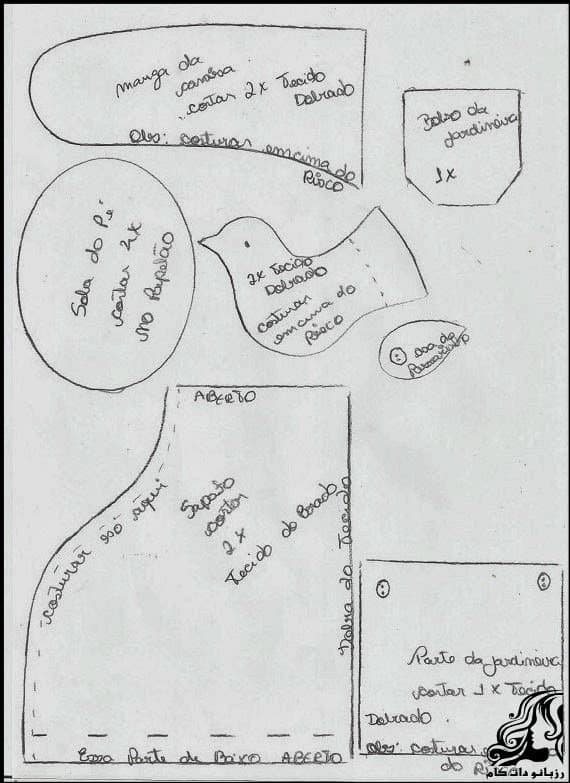 manga da
camisa
cortar 2x Tecido
Dobrado
Obs: costurar em cima do
Risco
Bolso da
jardineira
1x
Sola do Pé
cortar 2x
no Papelão
2x Tecido
Dobrado
costurar
em cima do
Risco
asa do
Passarinho
ABERTO
costurar só aqui
Sapato
cortar
2x
Tecido do Brado
Dobra do Tecido
Essa Parte de Baixo ABERTO
Parte da jardineira
cortar 1x Tecido
Dobrado.
Obs: costurar
do Risco
رزبانو دات کام